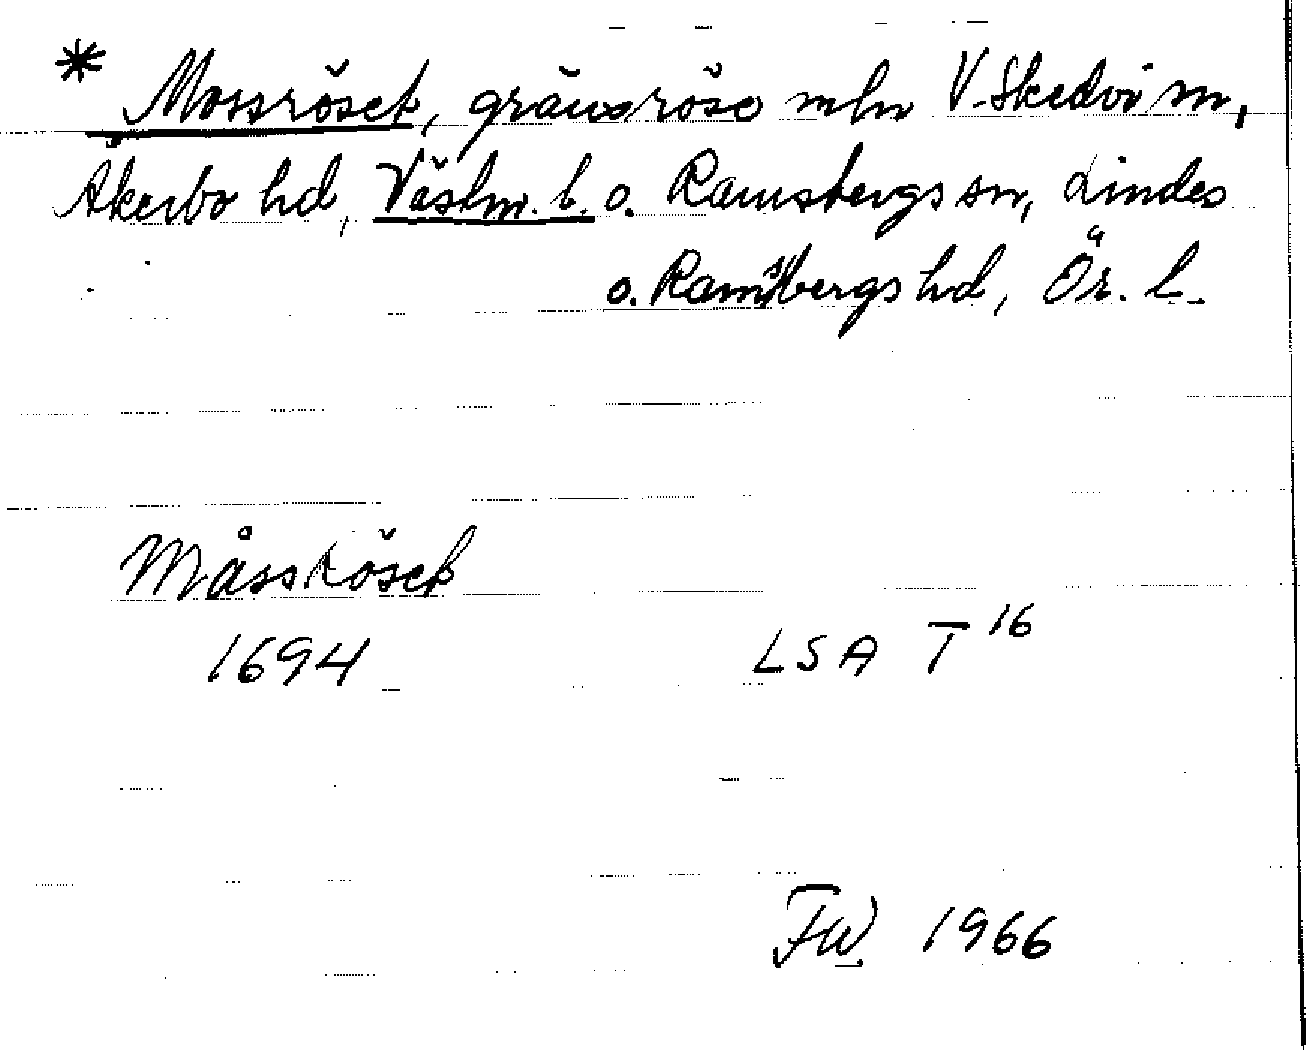 * Mossröset, gränsröse mln V. Skedvi sn,
Åkerbo hd, Västm. l. o. Ramsbergs sn, Lindes
o. Ramsbergs hd, Ör. l.
Måssröset
1694 LSA T 16
FW 1966